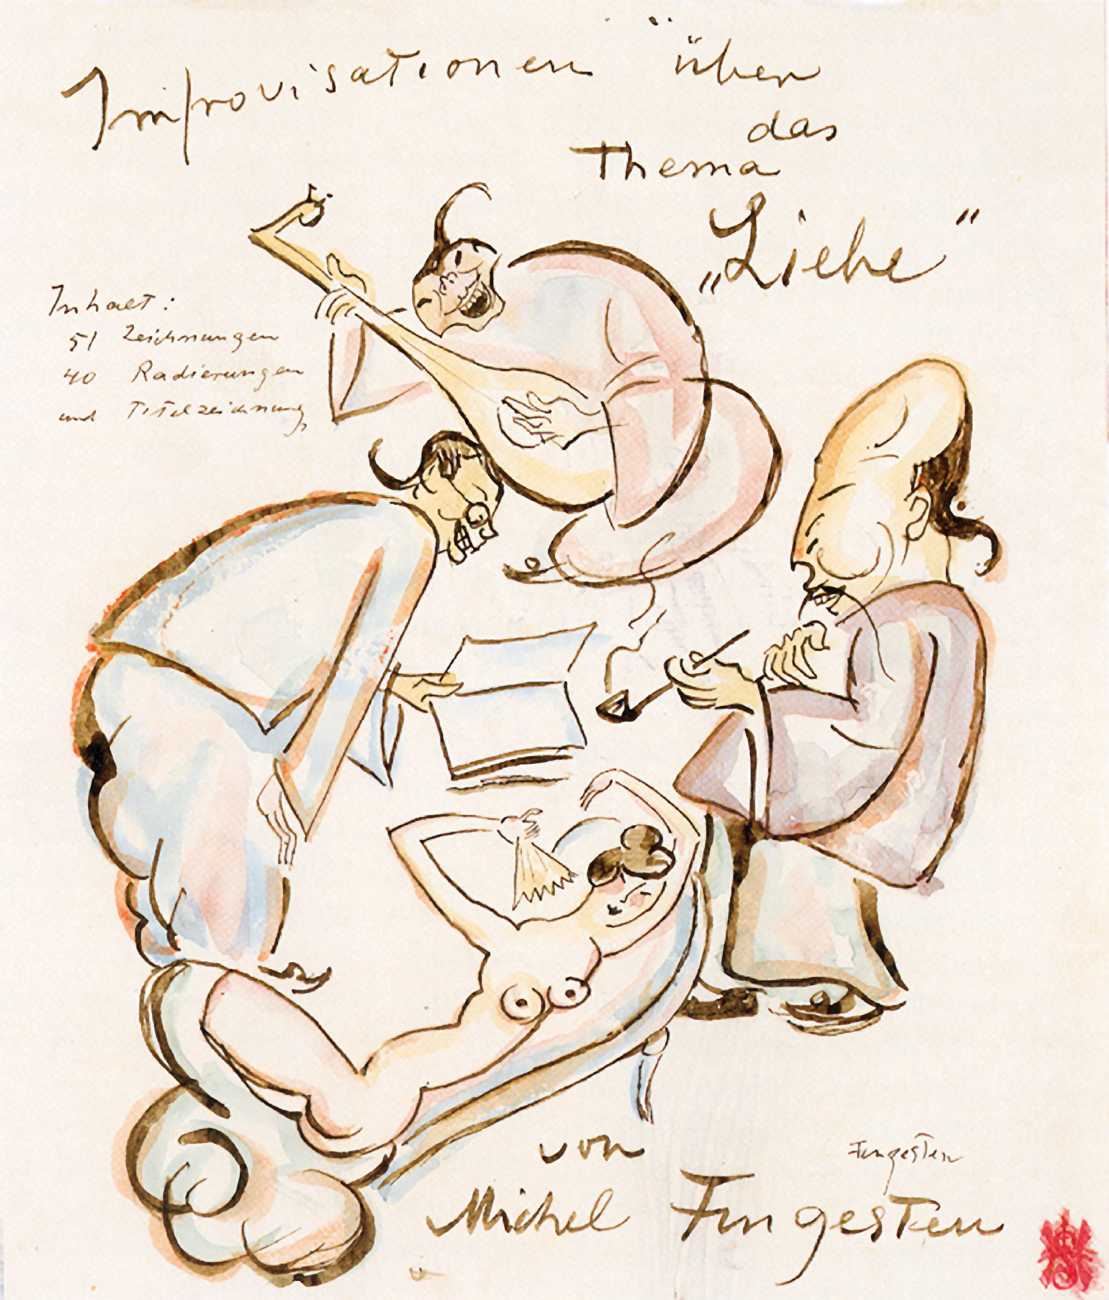 Improvisationen über
das
Thema
„Liebe"
Inhalt:
51 Zeichnungen
40 Radierungen
und Titelzeichnung
von
Fingesten
Michel Fingesten